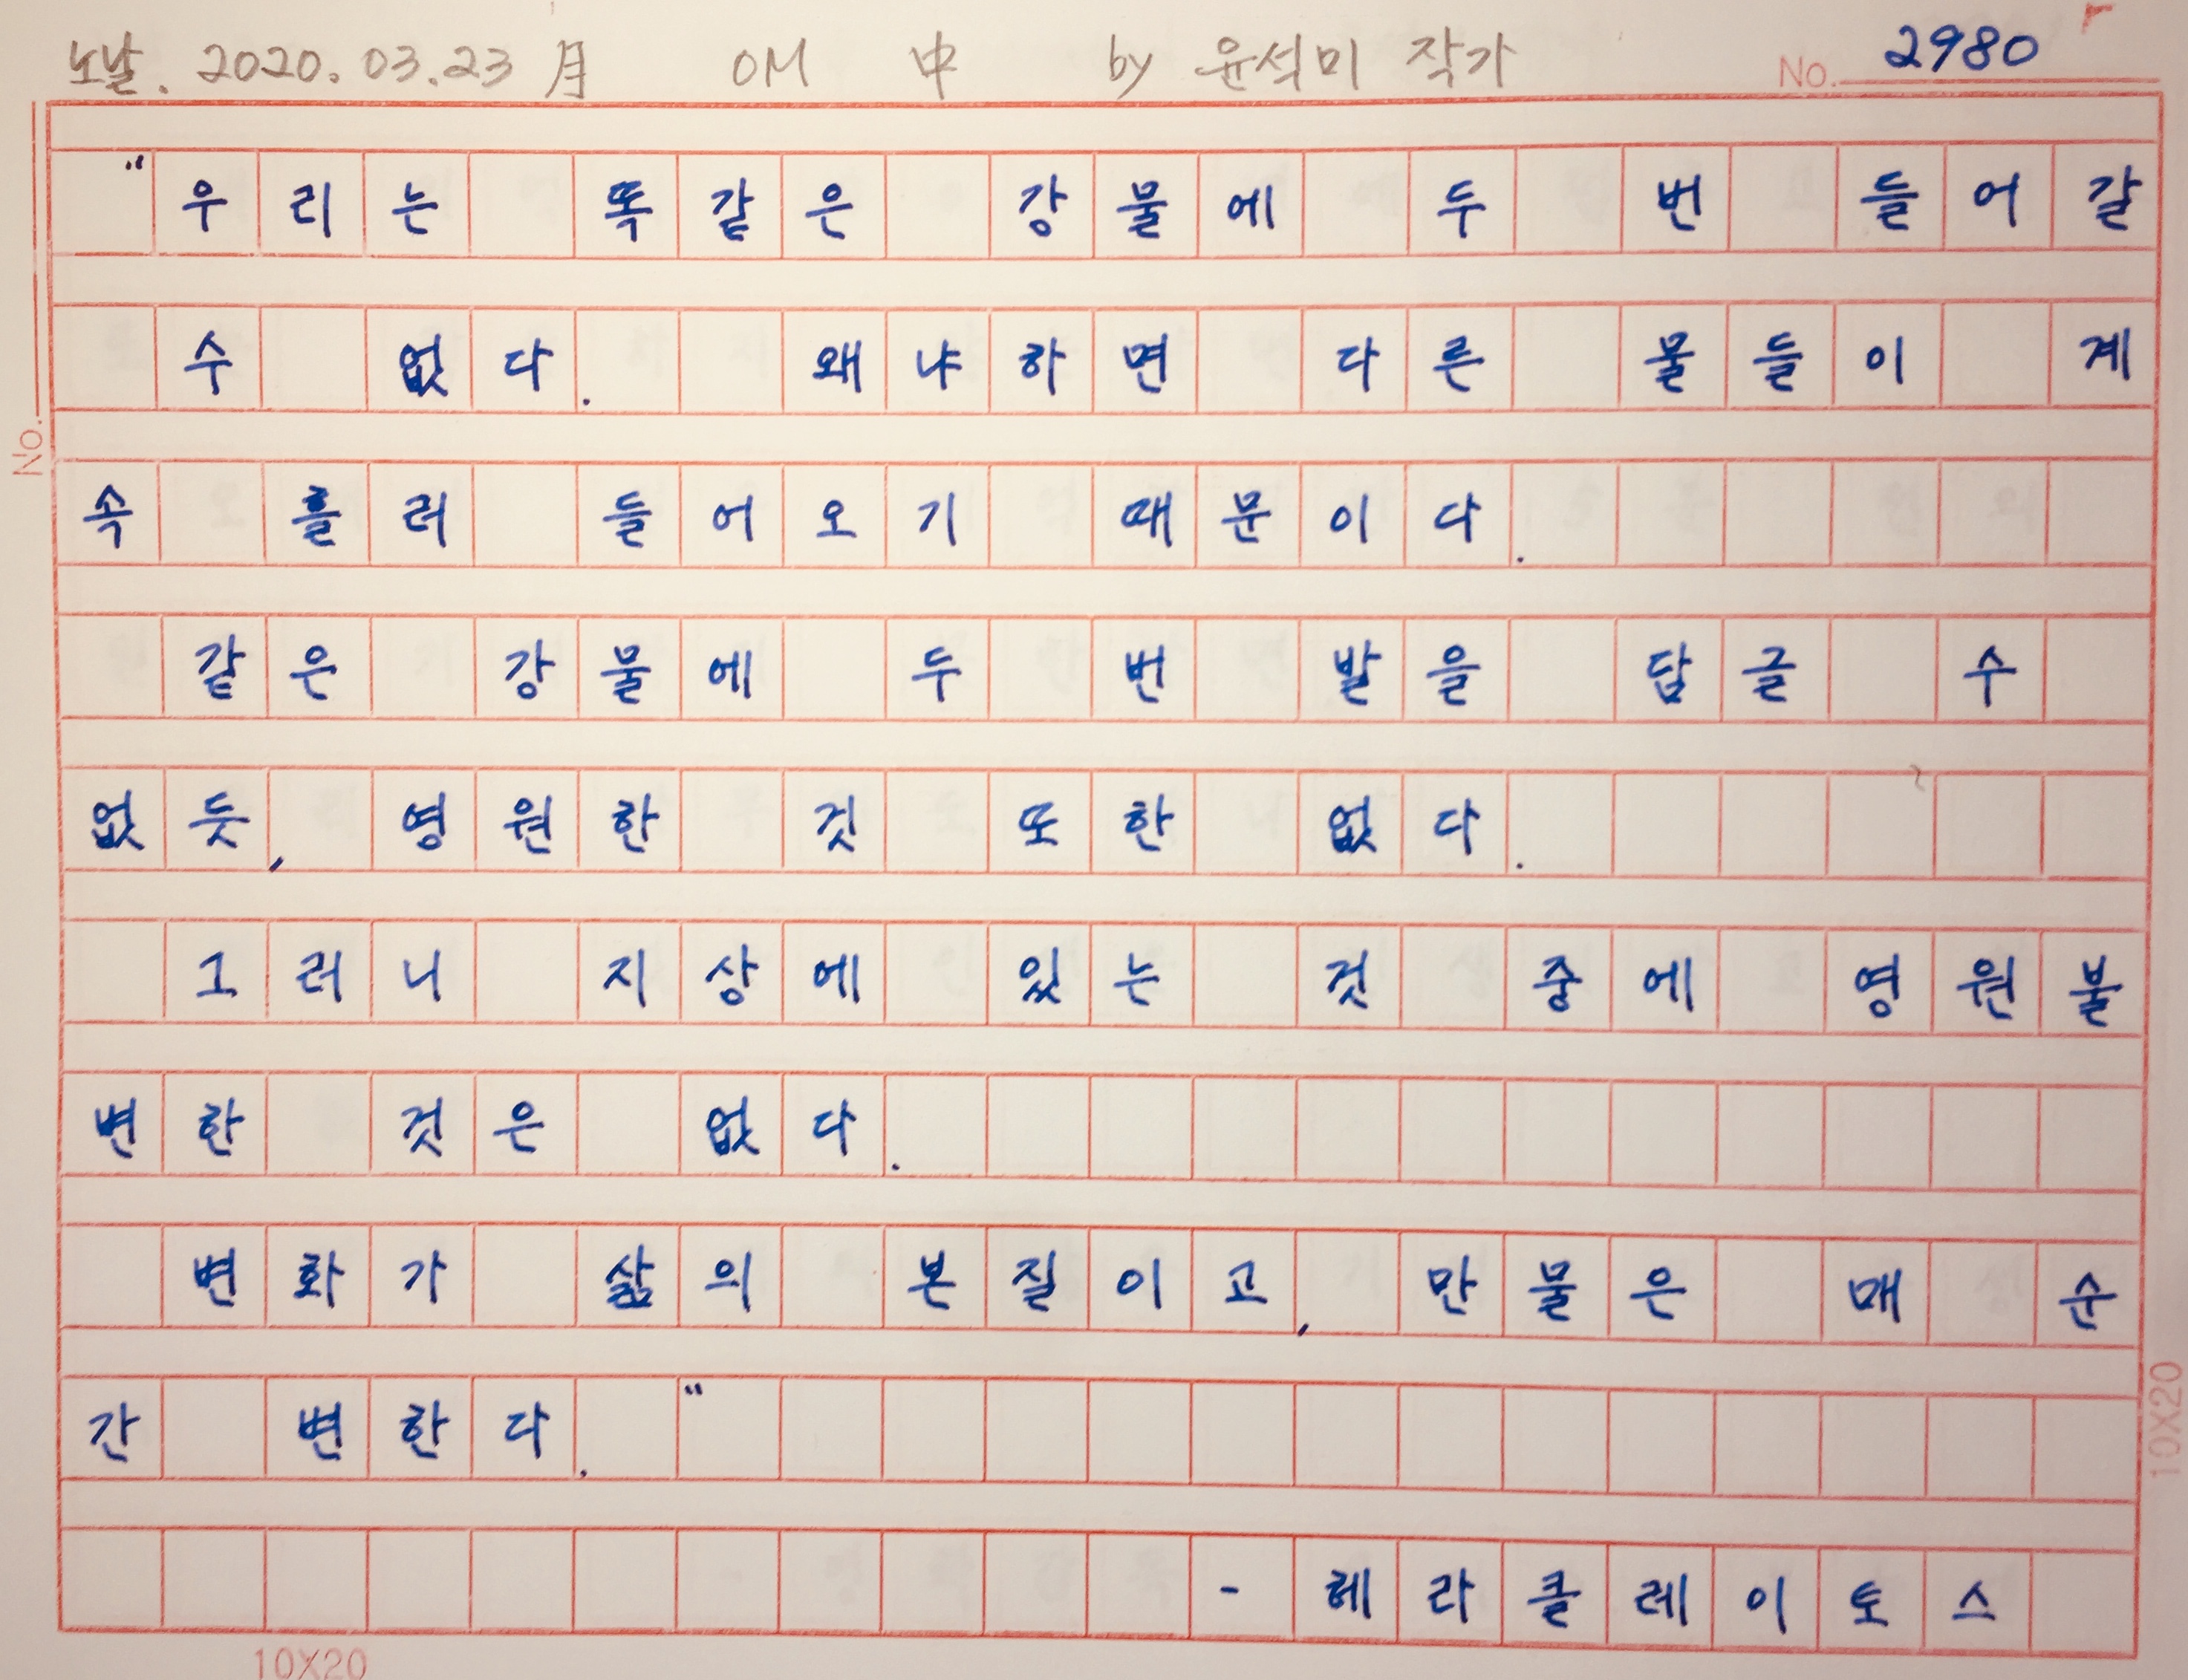 노날. 2020.03.23 月 OM 中 by 윤석미 작가 No. 2980
"우리는 똑같은 강물에 두 번 들어갈
수 없다. 왜냐하면 다른 물들이 계
속 흘러 들어오기 때문이다.
같은 강물에 두 번 발을 담글 수
없듯, 영원한 것 또한 없다.
그러니 지상에 있는 것 중에 영원불
변한 것은 없다.
변화가 삶의 본질이고, 만물은 매 순
간 변한다."
- 헤라클레이토스
No.
10X20
10X20